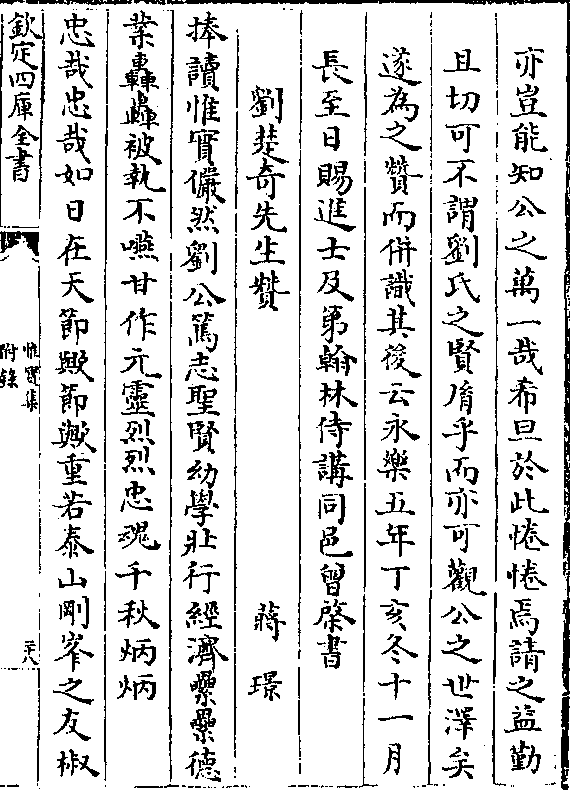 亦豈能知公之萬一哉希旦於此惓惓焉請之益勤
且切可不謂劉氏之賢胤乎而亦可觀公之世澤矣
遂為之贊而併識其後云永樂五年丁亥冬十一月
長至日賜進士及第翰林侍講同邑曾棨書
劉楚奇先生贊
蔣璟
捧讀惟實儼然劉公篤志聖賢幼學壯行經濟纍纍德
業轟轟被執不嚥甘作元靈烈烈忠魂千秋炳炳
忠哉忠哉如日在天節歟節歟重若泰山剛峯之友椒
欽定四庫全書
惟實集
附錄